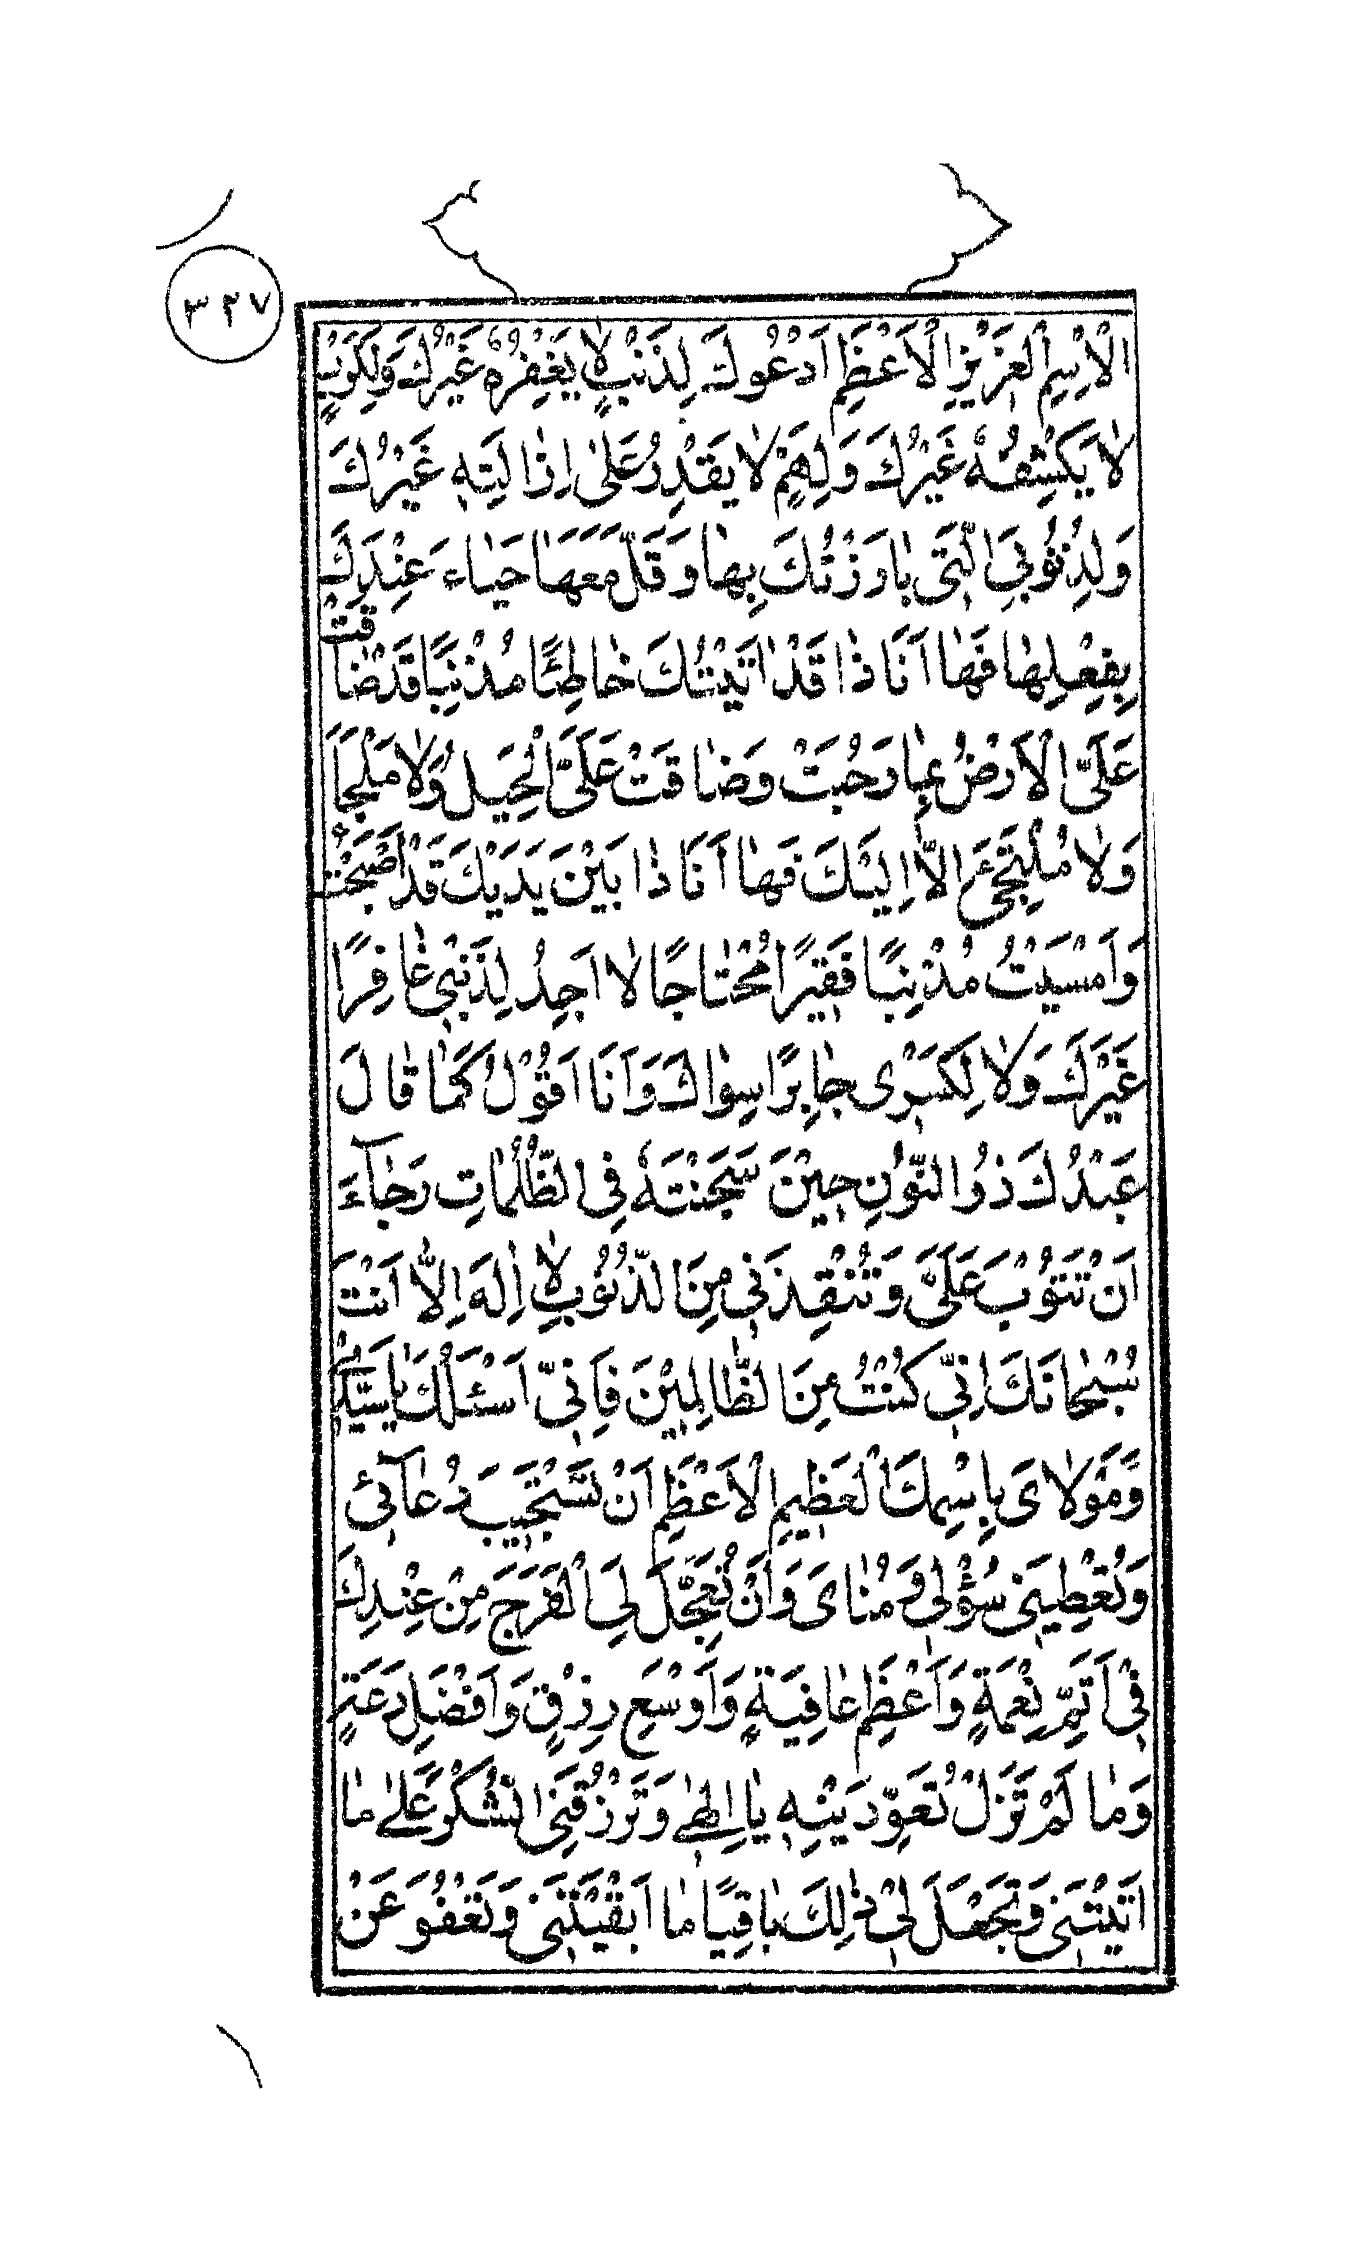 ٣٢٧
الْاِسْمِ الْعَزِيْزِ الْاَعْظَمِ اَدْعُوكَ لِذَنْبٍ لَا يَغْفِرُهُ غَيْرُكَ وَلِكَرْبٍ
لَا يَكْشِفُهُ غَيْرُكَ وَلِهَمٍّ لَا يَقْدِرُ عَلٰى اِزَالَتِهِ غَيْرُكَ
وَلِذُنُوْبِىَ الَّتِى بَارَزْتُكَ بِهَا وَقَلَّ مَعَهَا حَيَاءِ عِنْدَكَ
بِفِعْلِهَا فَهَا اَنَا ذَا قَدْ اَتَيْتُكَ خَاطِئًا مُذْنِبًا قَدْ ضَاقَتْ
عَلَىَّ الْاَرْضُ بِمَا رَحُبَتْ وَضَاقَتْ عَلَىَّ الْحِيَلُ وَلَا مَلْجَاَ
وَلَا مُلْتَجَئَ اِلَّا اِلَيْكَ فَهَا اَنَا ذَا بَيْنَ يَدَيْكَ قَدْ اَصْبَحْتُ
وَاَمْسَيْتُ مُذْنِبًا فَقِيْرًا مُحْتَاجًا لَا اَجِدُ لِذَنْبِىْ غَافِرًا
غَيْرَكَ وَلَا لِكَسْرِى جَابِرًا سِوَاكَ وَاَنَا اَقُوْلُ كَمَا قَالَ
عَبْدُكَ ذُوا النُّوْنِ حِيْنَ سَجَنْتَهُ فِى الظُّلُمَاتِ رَجَآءَ
اَنْ تَتُوْبَ عَلَىَّ وَتُنْقِذَنِى مِنَ الذُّنُوْبِ لَا اِلٰهَ اِلَّا اَنْتَ
سُبْحَانَكَ اِنِّى كُنْتُ مِنَ الظَّالِمِيْنَ فَاِنِّى اَسْئَلُكَ يَا سَيِّدِى
وَمَوْلَاىَ بِاسْمِكَ الْعَظِيْمِ الْاَعْظَمِ اَنْ تَسْتَجِيْبَ دُعَآئِى
وَتُعْطِيَنِى سُؤْلِى وَمُنَاىَ وَاَنْ تُعَجِّلَ لِىَ الْفَرَجَ مِنْ عِنْدِكَ
فِىْ اَتَمِّ نِعْمَةٍ وَاَعْظَمِ عَافِيَةٍ وَاَوْسَعِ رِزْقٍ وَاَفْضَلِ دَعَةٍ
وَمَا لَمْ تَزَلْ تُعَوِّدَنِيْهِ يَا اِلٰهِى وَتَرْزُقَنِى الشُّكْرَ عَلٰى مَا
اٰتَيْتَنِى وَتَجْعَلَ لِىْ ذٰلِكَ بَاقِيًا مَا اَبْقَيْتَنِى وَتَعْفُوَ عَنْ